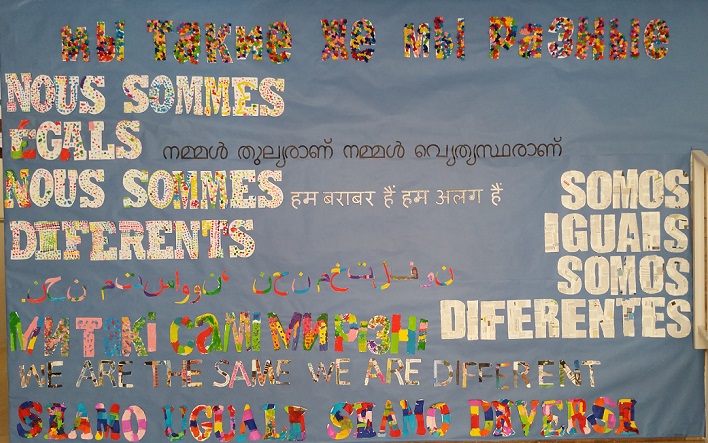 мы такие же мы разные
NOUS SOMMES
ÉGALS
NOUS SOMMES
DIFERENTS
നമ്മൾ തുല്യരാണ് നമ്മൾ വ്യെത്യസ്ഥരാണ്
हम बराबर हैं हम अलग हैं
SOMOS
IGUAIS
SOMOS
DIFERENTES
МИ ТАКІ САМІ МИ
WE ARE THE SAME WE ARE DIFFERENT
SIAMO UGUALI SIAMO DIVERSI